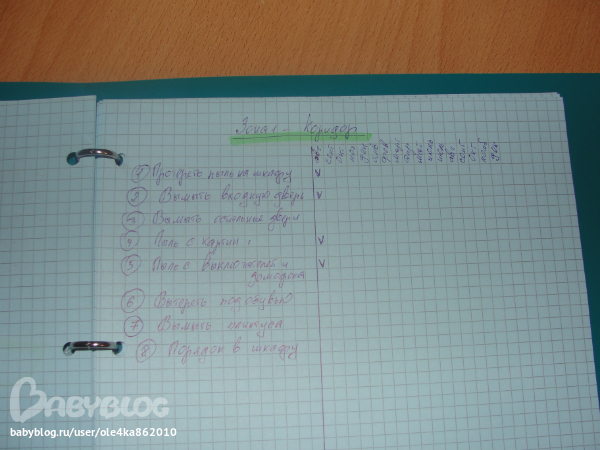 Зона 1 - Коридор
① Протереть пыль на шкафу
② Вымыть входную дверь
③ Вымыть остальные двери
④ Пыль с картин
⑤ Пыль с выключателей и
домофона
⑥ Вытереть под обувью
⑦ Вымыть плинтуса
⑧ Порядок в шкафу
BABYBLOG
babyblog.ru/user/ole4ka862010